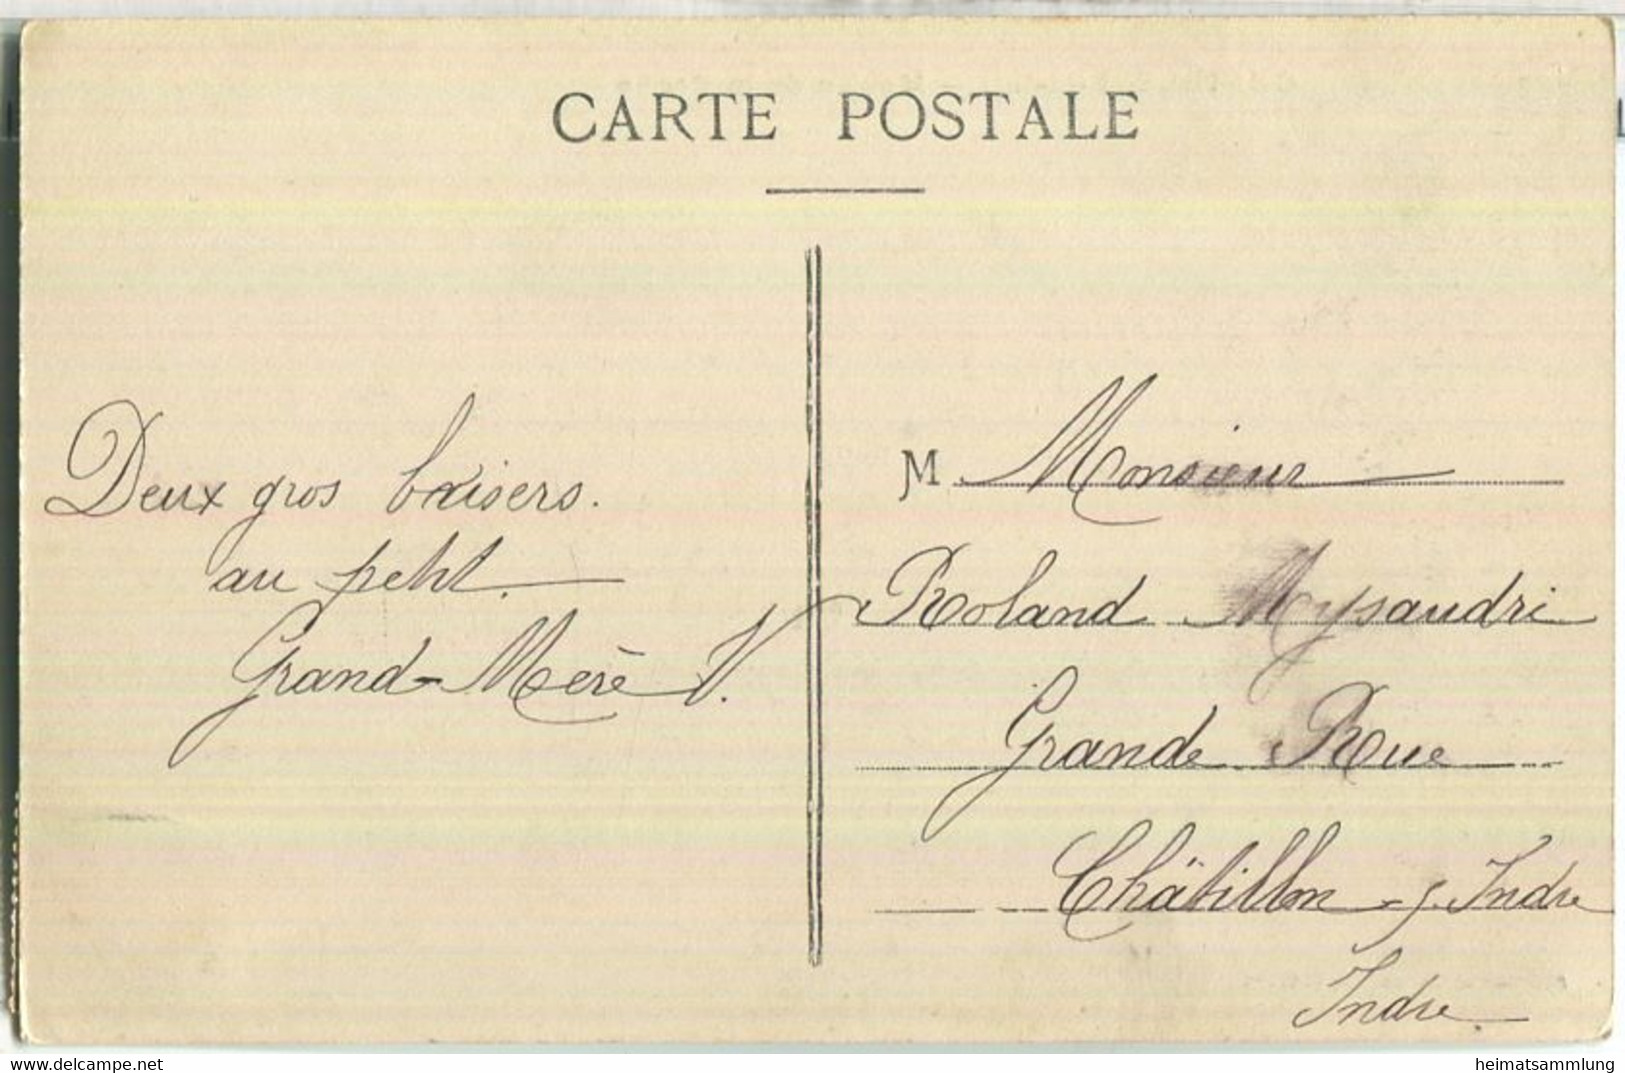 CARTE POSTALE
Deux gros baisers.
au petit.
Grand-Mère V.
M Monsieur
Roland Mysaudri
Grande Rue
Châtillon s/ Indre
Indre
www.delcampe.net
heimatsammlung